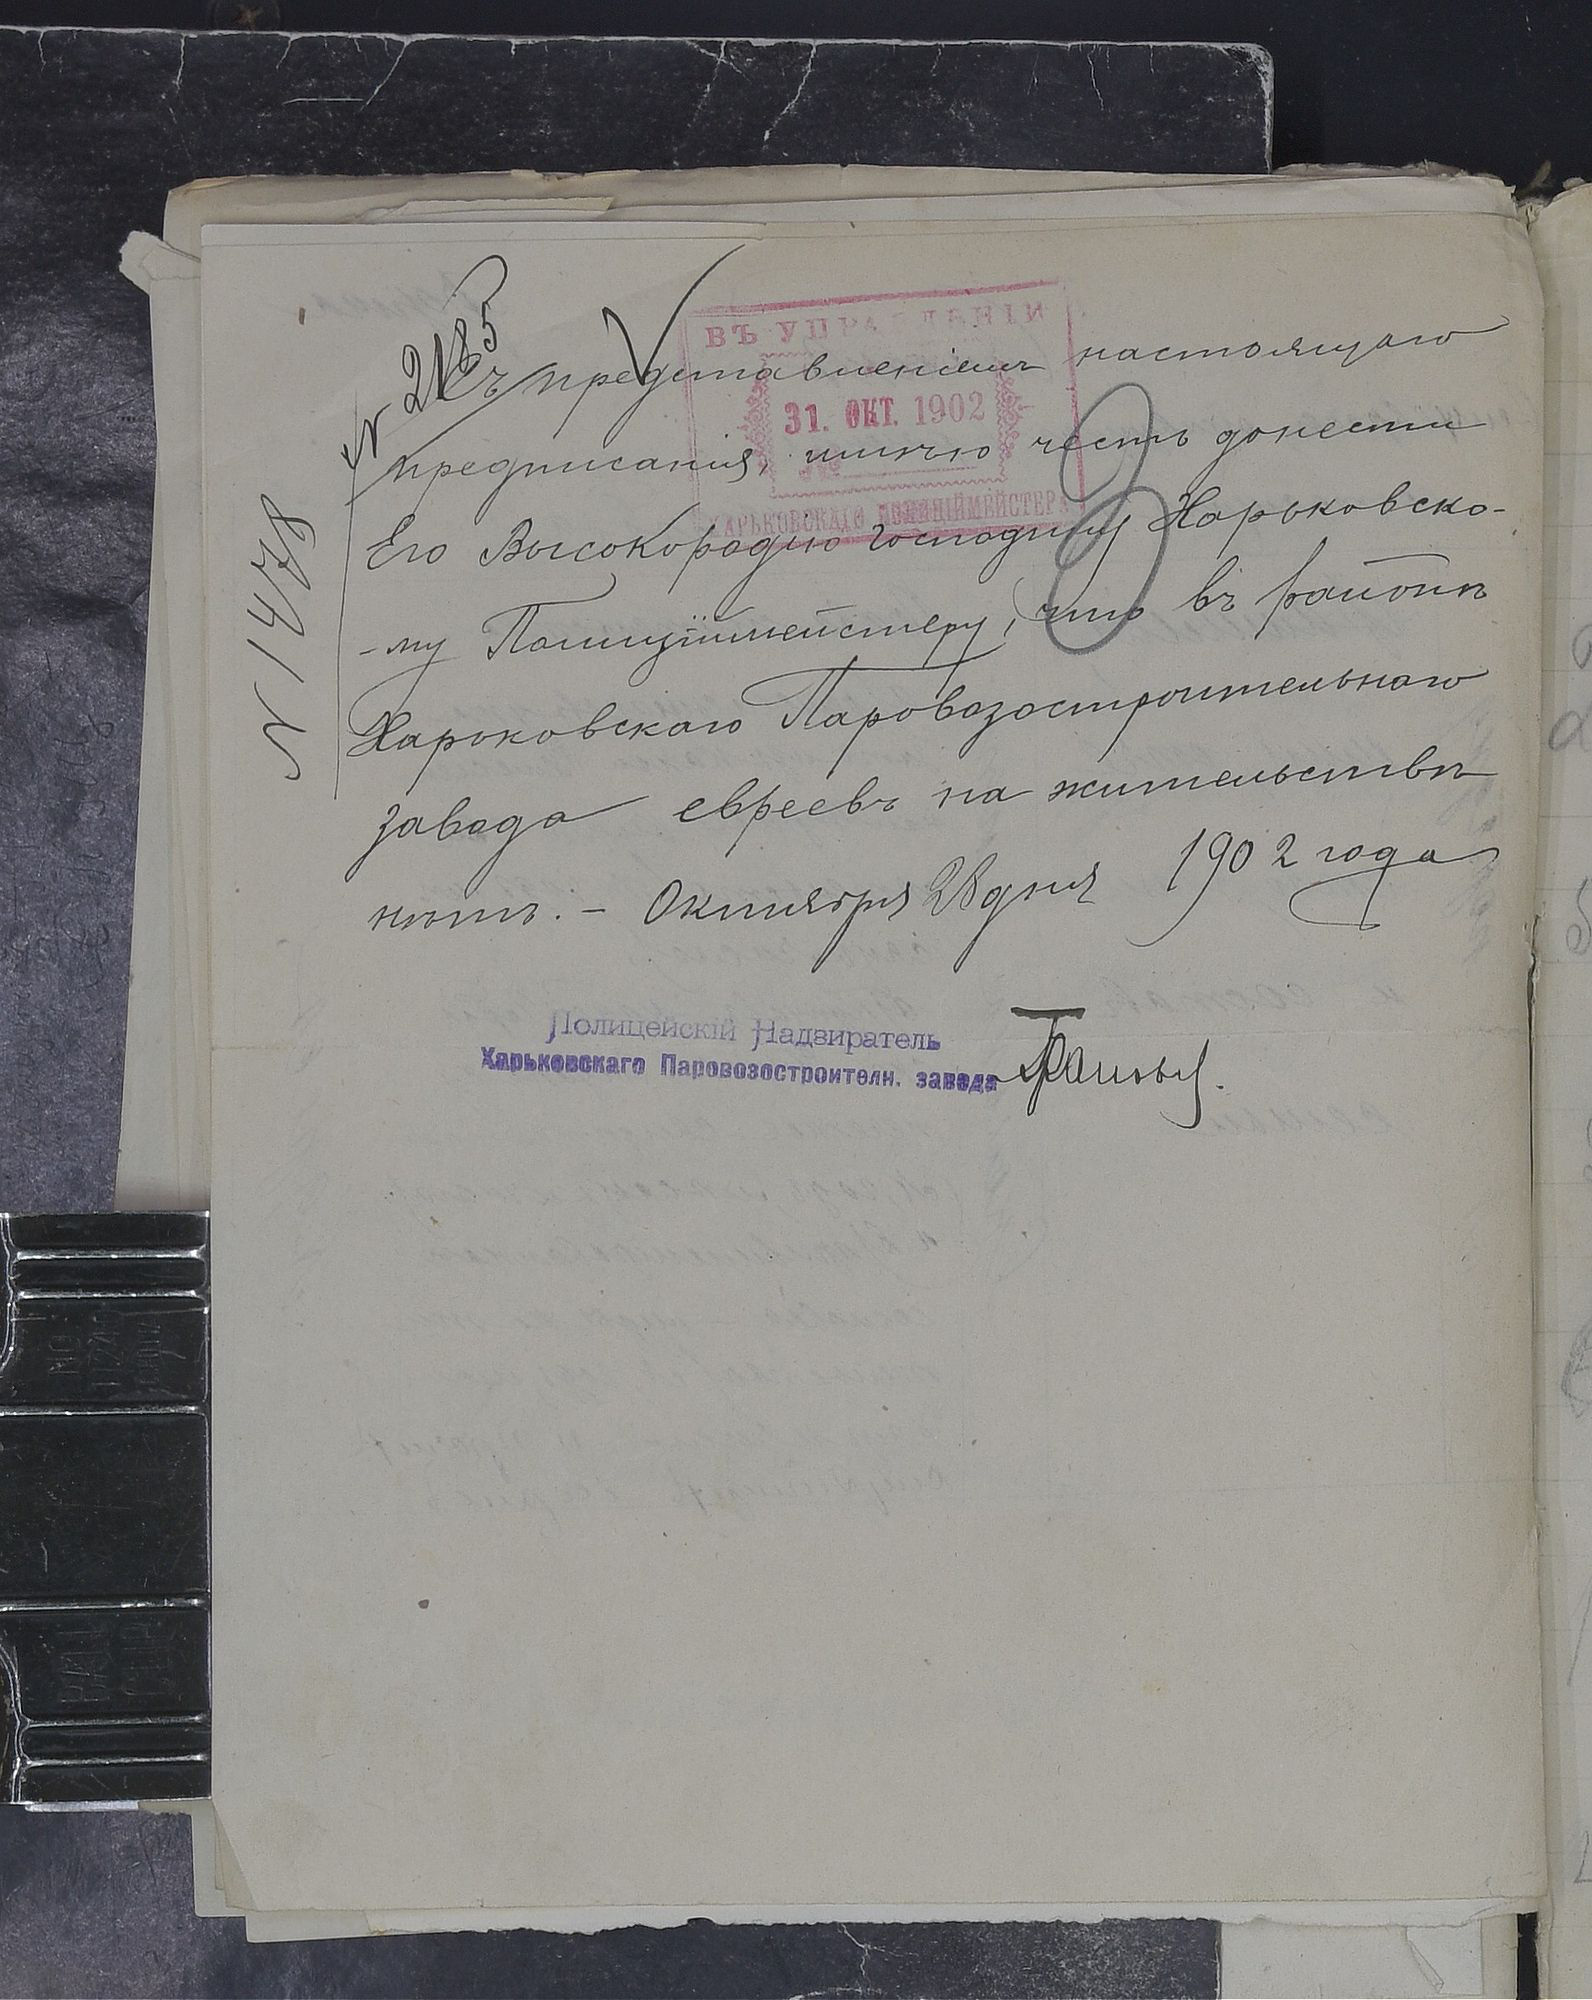 № 2185
ВЪ УПРАВЛЕНІИ
31. ОКТ. 1902
ХАРЬКОВСКАГО ПОЛИЦІЙМЕЙСТЕРА
№ 1478
Съ представленіемъ настоящаго
предписанія, имѣю честь донести
Его Высокородію Господину Харьковско-
-му Полиціймейстеру, что въ районѣ
Харьковскаго Паровозостроительнаго
завода евреевъ на жительствѣ
нѣтъ. - Октября 28 дня 1902 года
Полицейскій Надзиратель
Харьковскаго Паровозостроителн. завода